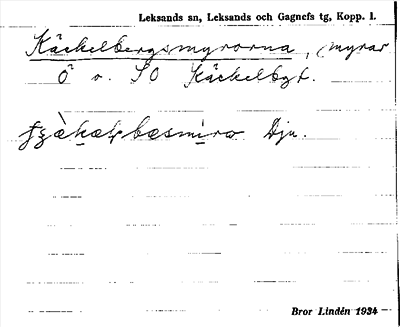 Leksands sn, Leksands och Gagnefs tg, Kopp. l.
Käckelbergsmyrorna, myrar
Ö o. SO Käckelbgt.
Dju.
Bror Lindén 1934